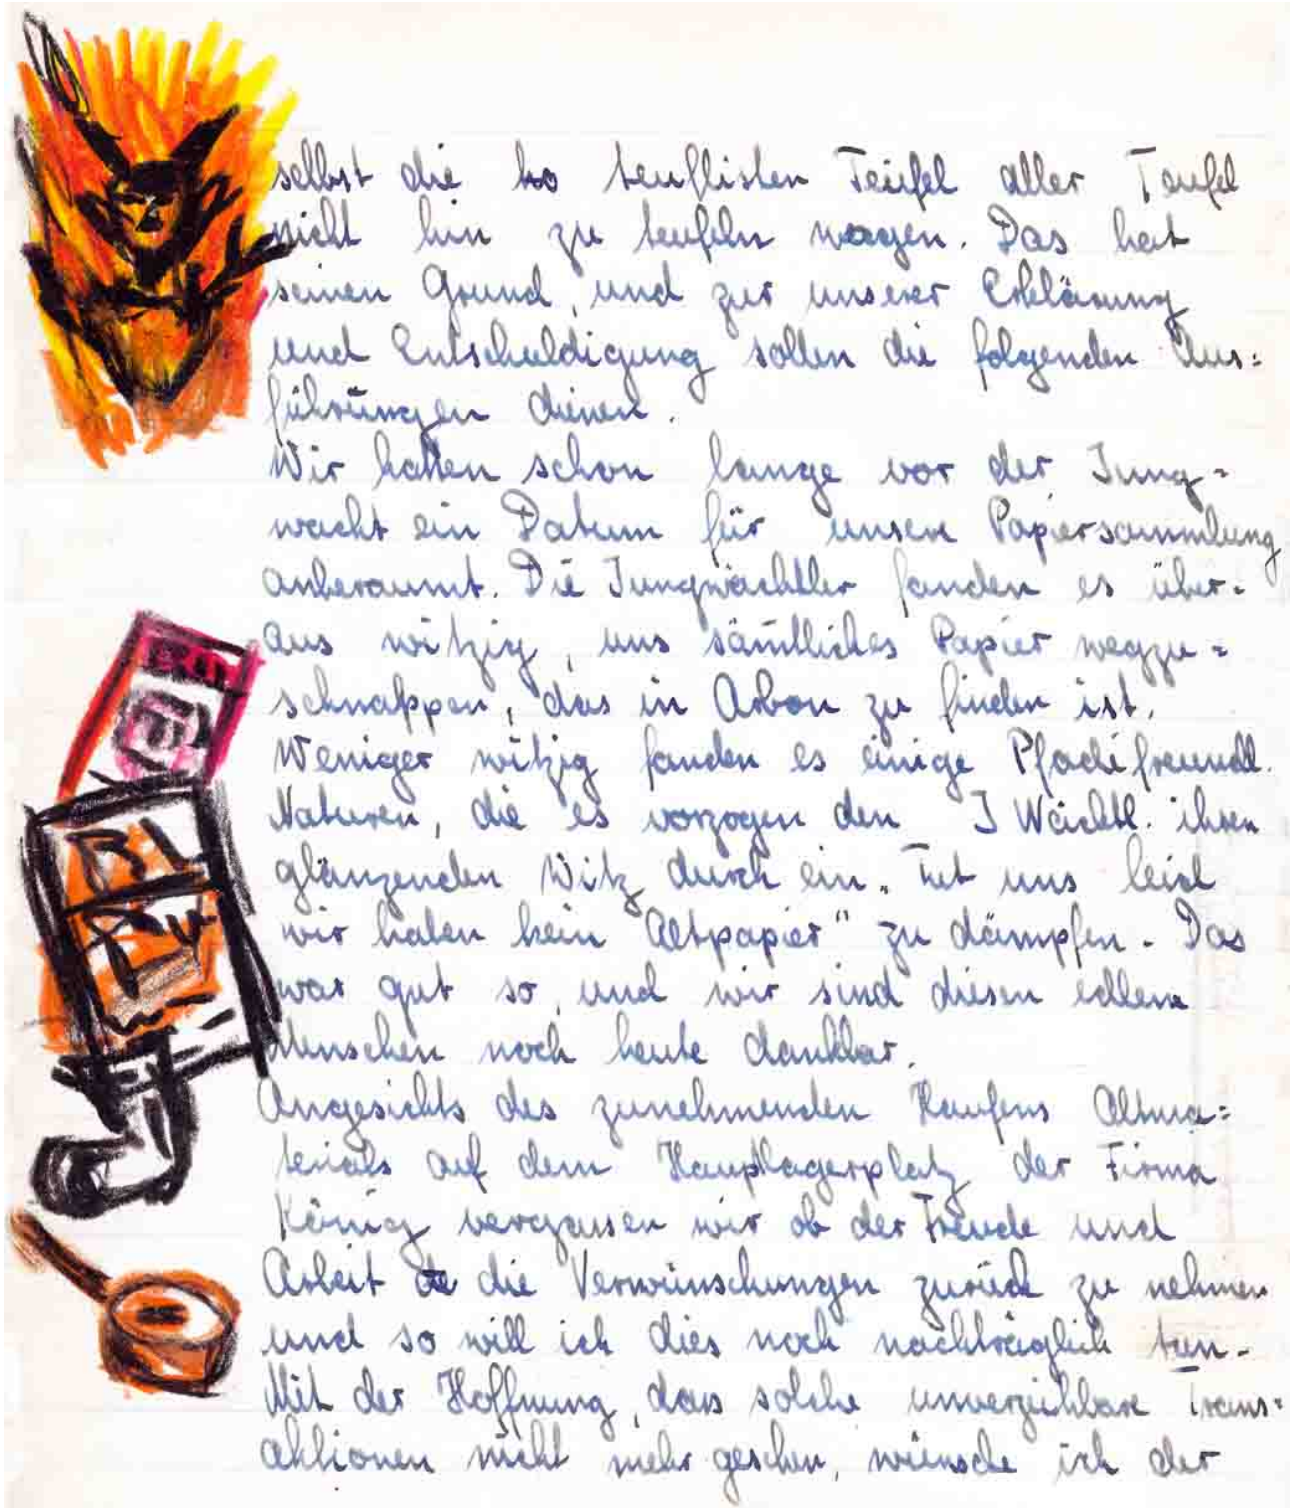 selbst die teuflisten Teufel aller Teufel
nicht hin zu teufeln wagen. Das hat
seinen Grund, und zur unserer Erklärung
und Entschuldigung sollen die folgenden Aus=
führungen dienen.
Wir hatten schon lange vor der Jung=
wacht ein Datum für unsere Papiersammlung
anberaumt. Die Jungwächtler fanden es über=
aus witzig, uns sämtliches Papier wegzu=
schnappen, das in Arbon zu finden ist.
Weniger witzig fanden es einige Pfadifreundl.
Naturen, die es vorzogen den J Wächtl. ihren
glänzenden Witz durch ein „Tut uns leid
wir haben kein Altpapier" zu dämpfen. Das
war gut so, und wir sind diesen edlen
Menschen noch heute dankbar.
Angesichts des zunehmenden Haufens Altma=
terials auf dem Hauptlagerplatz der Firma
König vergassen wir ob der Freude und
Arbeit die Verwünschungen zurück zu nehmen
und so will ich dies noch nachträglich tun.
Mit der Hoffnung, dass solche unverzeihbare Trans=
aktionen nicht mehr geschen, wünsche ich der